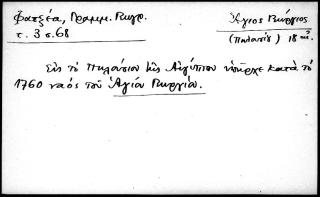 Φατζέα, Γραμμ. Γεωρ.
τ. 3 σ. 68
Ἅγιος Γεώργιος
(Πηλούσιο) 18 αἰ.
Εἰς τὸ Πηλούσιον τῆς Αἰγύπτου ὑπῆρχε κατὰ τὸ
1760 ναὸς τοῦ Ἁγίου Γεωργίου.